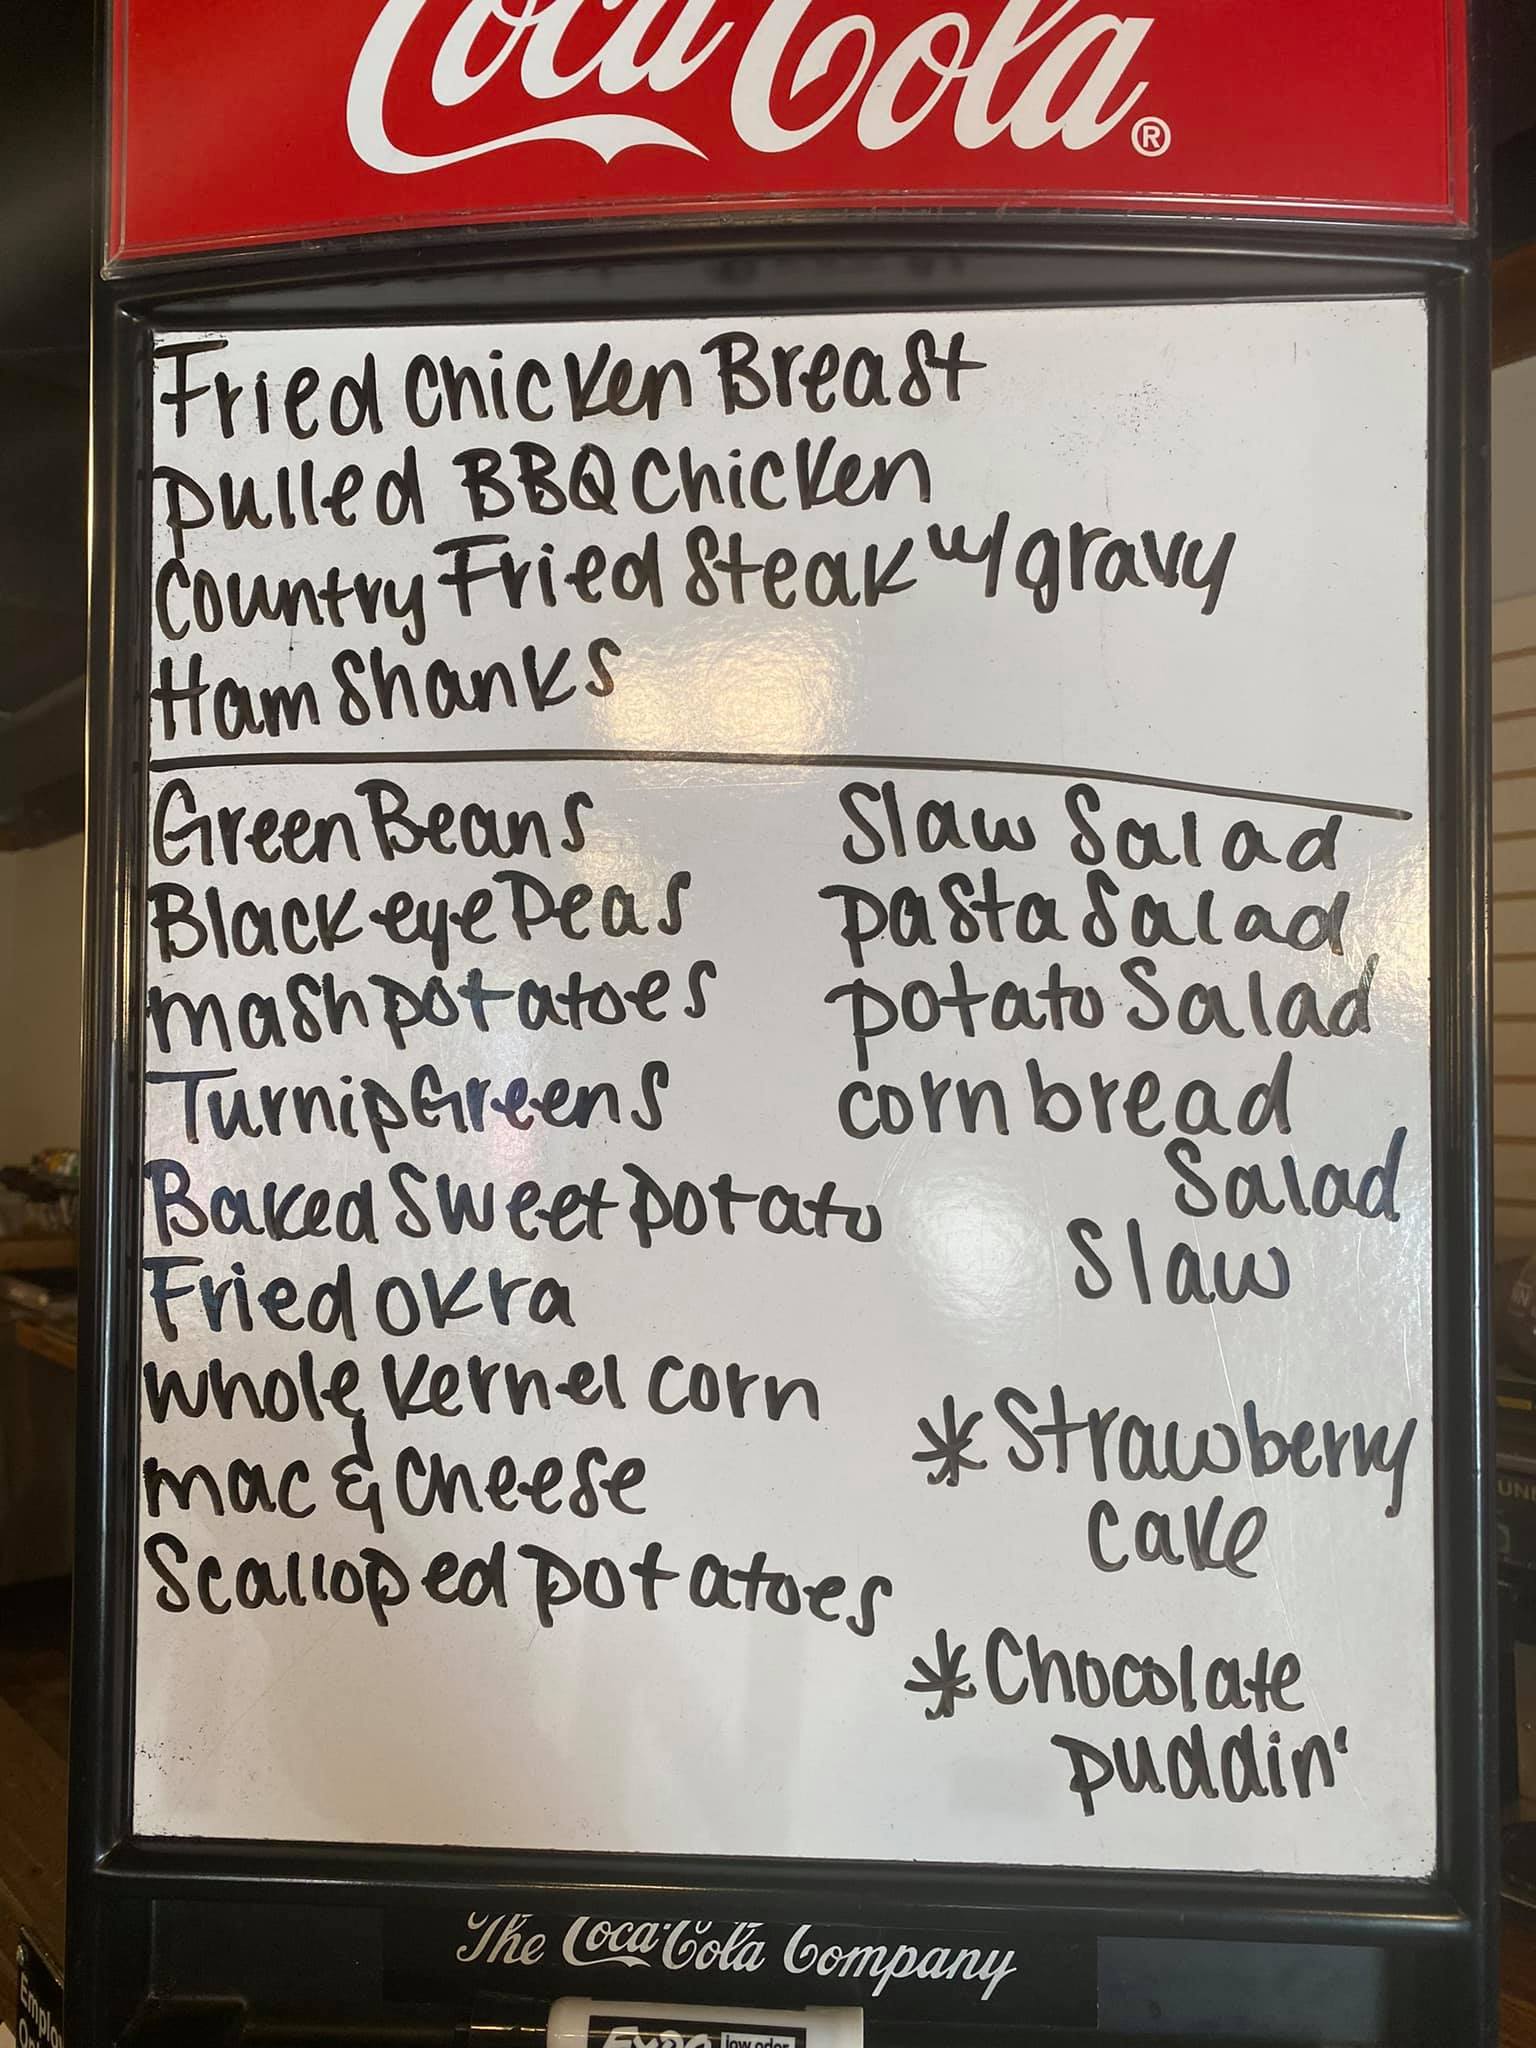 Coca-Cola®
Fried Chicken Breast
Pulled BBQ Chicken
Country Fried Steak w/ gravy
Ham Shanks
Green Beans
Black eye Peas
mash potatoes
Turnip Greens
Baked Sweet Potato
Fried okra
whole kernel corn
mac & cheese
Scalloped potatoes
Slaw Salad
Pasta Salad
potato Salad
corn bread
Salad
Slaw
*Strawberry
cake
*Chocolate
puddin'
The Coca-Cola Company
EXPO low odor